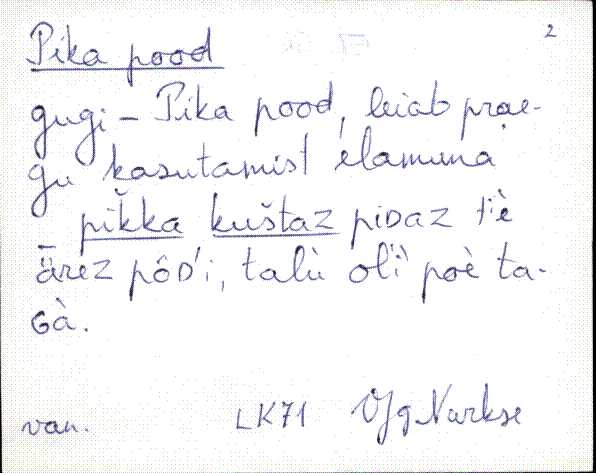 2
Pika pood
gugi – Pika pood, leiab prae-
gu kasutamist elamuna
pĭkka kuštaz piDaz t'iè
ärez pôD'i, talù ol'ì poè ta-
Gà.
van. LK71 Nurkse